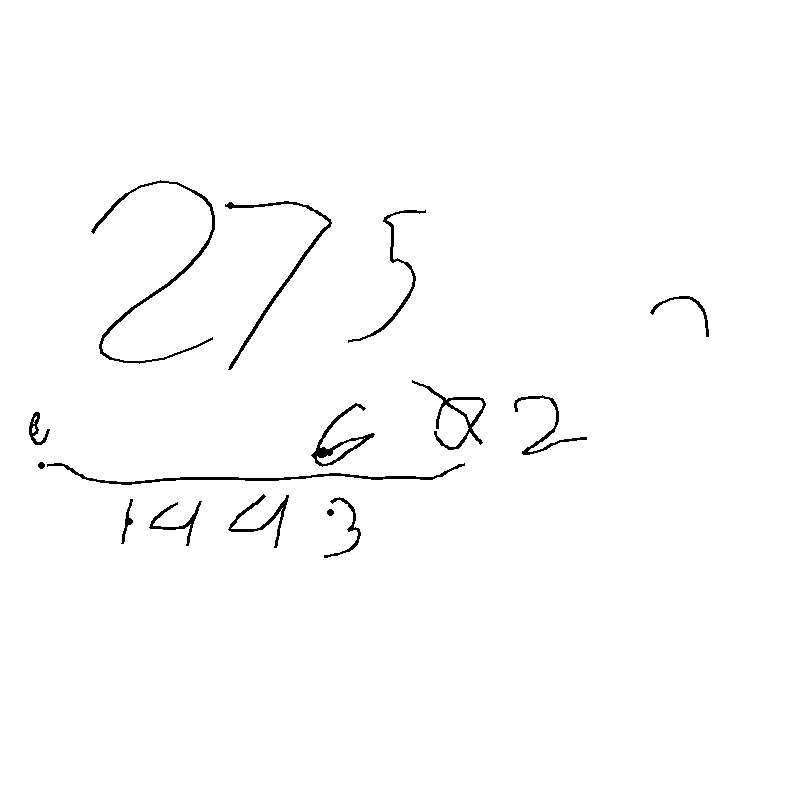 275
6 2
1443